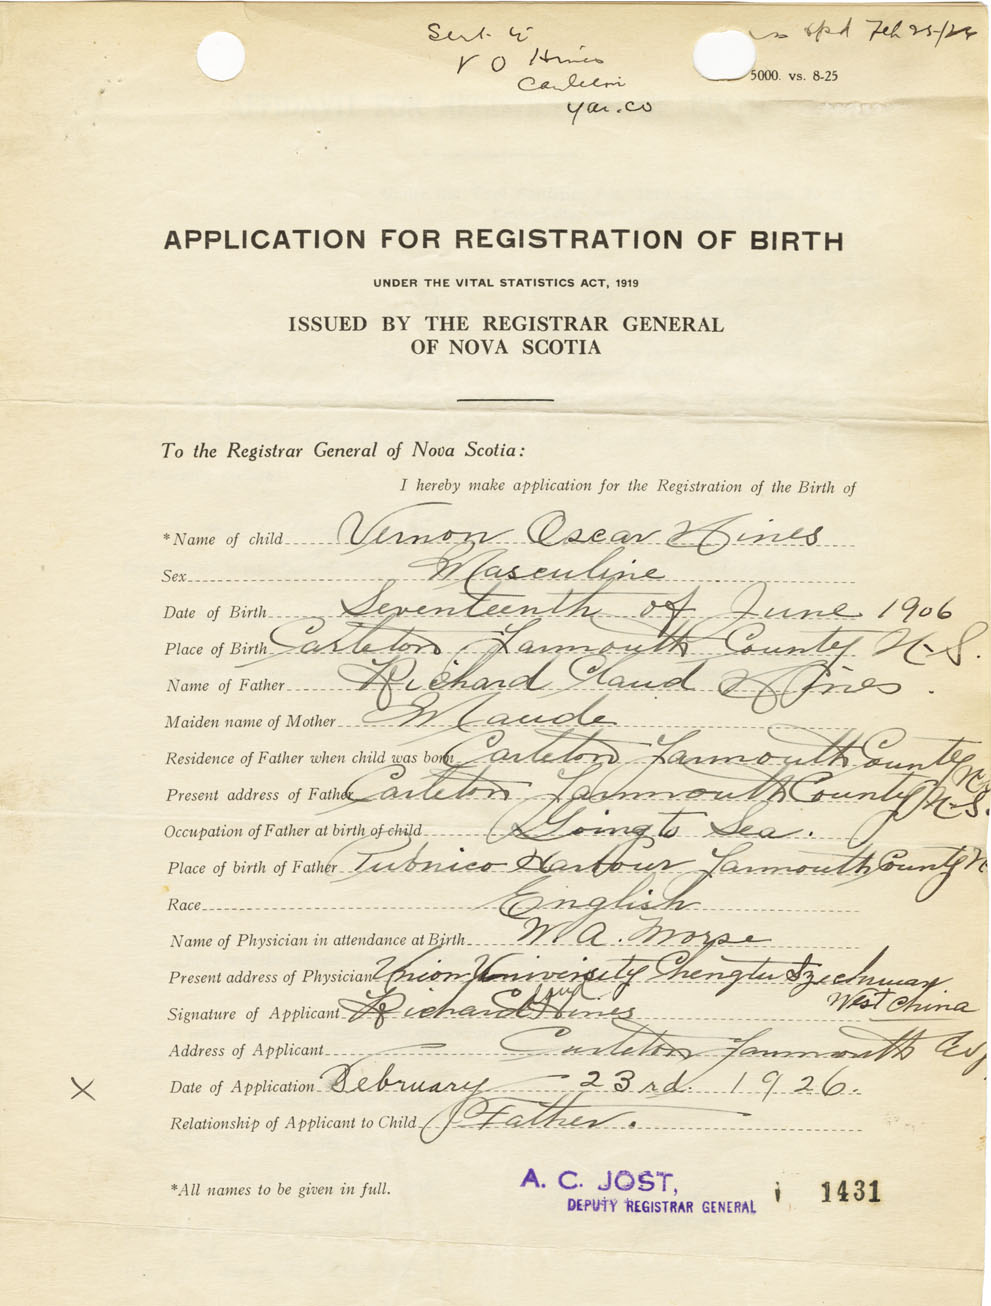 Sent to
V O Hines
Carleton
Yar. Co
Feb 25/26
5000. vs. 8-25
APPLICATION FOR REGISTRATION OF BIRTH
UNDER THE VITAL STATISTICS ACT, 1919
ISSUED BY THE REGISTRAR GENERAL
OF NOVA SCOTIA
To the Registrar General of Nova Scotia:
I hereby make application for the Registration of the Birth of
*Name of child Vernon Oscar Hines
Sex Masculine
Date of Birth Seventeenth of June 1906
Place of Birth Carleton, Yarmouth County N-S.
Name of Father Richard Claud Hines.
Maiden name of Mother Maude
Residence of Father when child was born Carleton Yarmouth County N-S
Present address of Father Carleton Yarmouth County N-S.
Occupation of Father at birth of child Going to Sea.
Place of birth of Father Pubnico Harbour Yarmouth County N
Race English
Name of Physician in attendance at Birth W. A. Morse
Present address of Physician Union University Chengtu Szechwan
West China
Signature of Applicant Richard Hines
Address of Applicant Carleton Yarmouth Co
Date of Application February 23rd. 1926.
Relationship of Applicant to Child Father.
X
*All names to be given in full.
A. C. JOST,
DEPUTY REGISTRAR GENERAL
1431